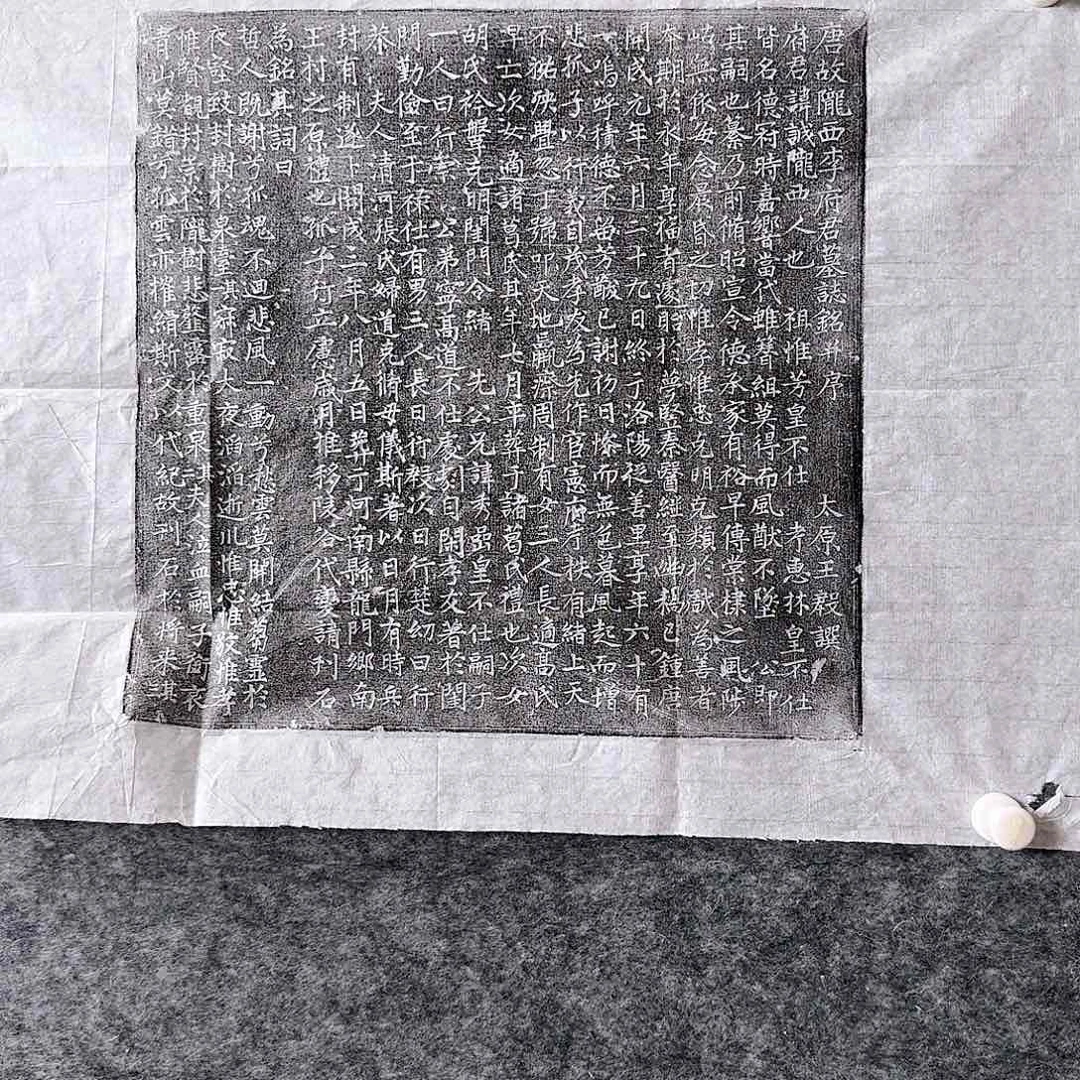 唐故隴西李府君墓誌銘并序 太原王毅譔
府君諱誠隴西人也 祖惟芳皇不仕 考惠林皇不仕
皆名德府時嘉響當代雖簪組莫得而風猷不墜 公即
其嗣也纂乃前脩昭宣令德承家有裕早傳棠棣之風陟
岵無依每念晨昏之切惟孝惟忠克明克類於戲為善者
期於永年享福者
開成元年六月二十九日終于洛陽從善里享年六十有
一嗚呼積德不 芳 已謝初日慘而無色暮風起而增
悲孤子以行 自茂孝友為先作官憲府子秩有緒上天
不祐殃舋忽于號叩天地羸瘠周制有女三人長適髙氏
早亡次女適諸葛氏其年七月卒葬于諸葛氏禮也次女
胡氏衿鞶克明閨門令緒 先公兄諱秀 皇不仕嗣子
一人曰行素 公弟寧髙道不仕 自閑孝友著於閨
門勤儉至于祿仕有男三人長曰行毅次曰行楚幼曰行
恭 夫人清河張氏婦道克脩母儀斯著以日月有時兵
封有制遂卜開成三年八月五日葬于河南縣龍門鄉南
王村之原禮也孤子行立慮歲月推移陵谷代變請刊石
為銘其詞曰
哲人既謝兮孤魂不迴悲風一動兮愁雲莫開 靈於
夜 封樹於泉臺 寂大夜滔滔逝川惟忠惟 惟孝
惟 封 隴樹悲 重泉 夫人泣血嗣子
青山 兮孤雲亦 斯文以代紀故刊石於將来